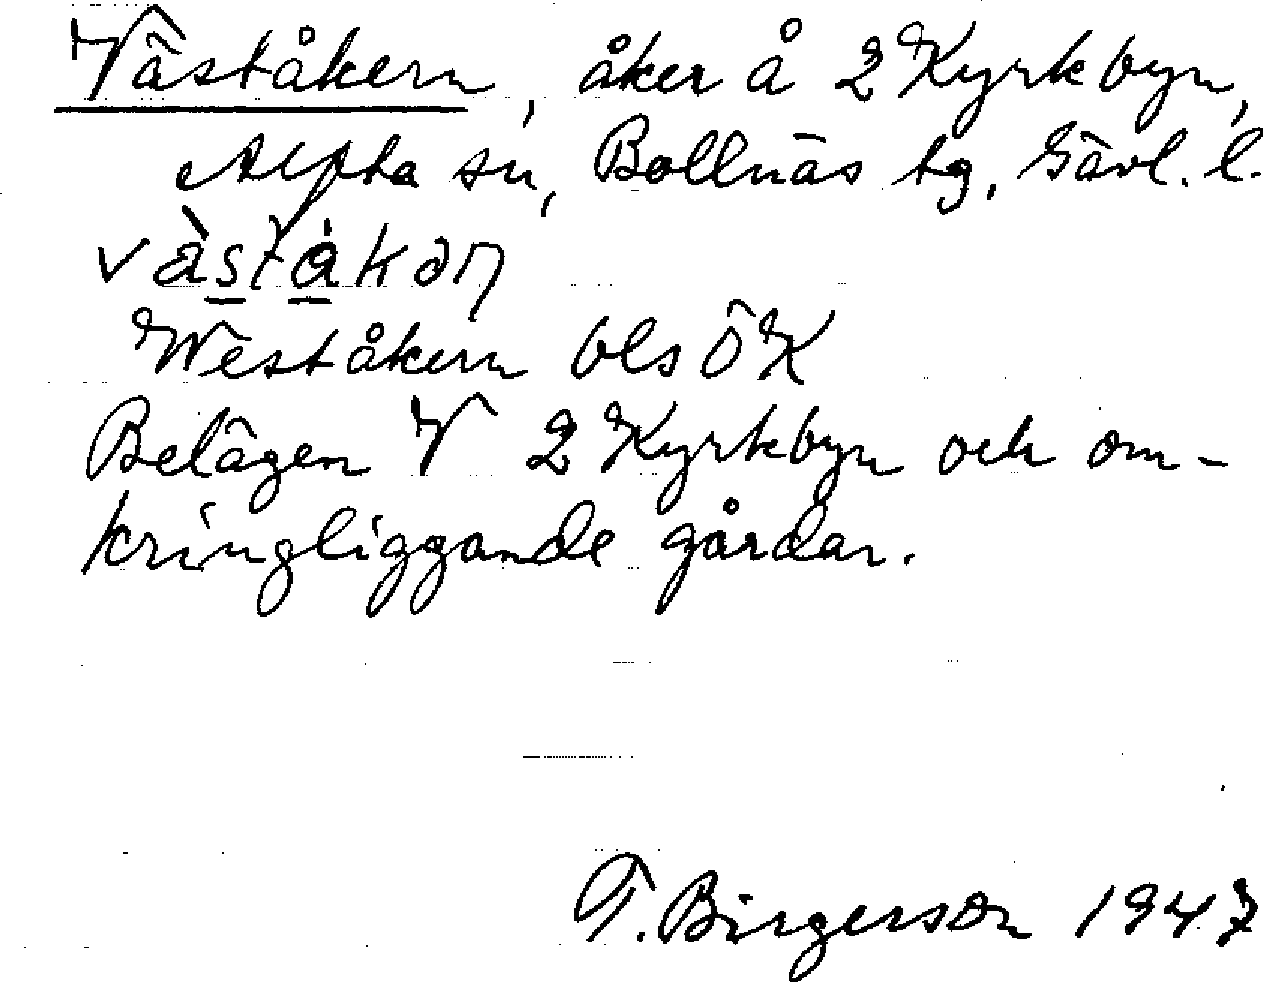 Väståkern, åker å 2 Kyrkbyn,
Alfta sn, Bollnäs tg, Gävl. l.
vàståkəṇ
Weståkern bls ÖK
Belägen V 2 Kyrkbyn och om-
kringliggande gårdar.
F. Birgerson 1947